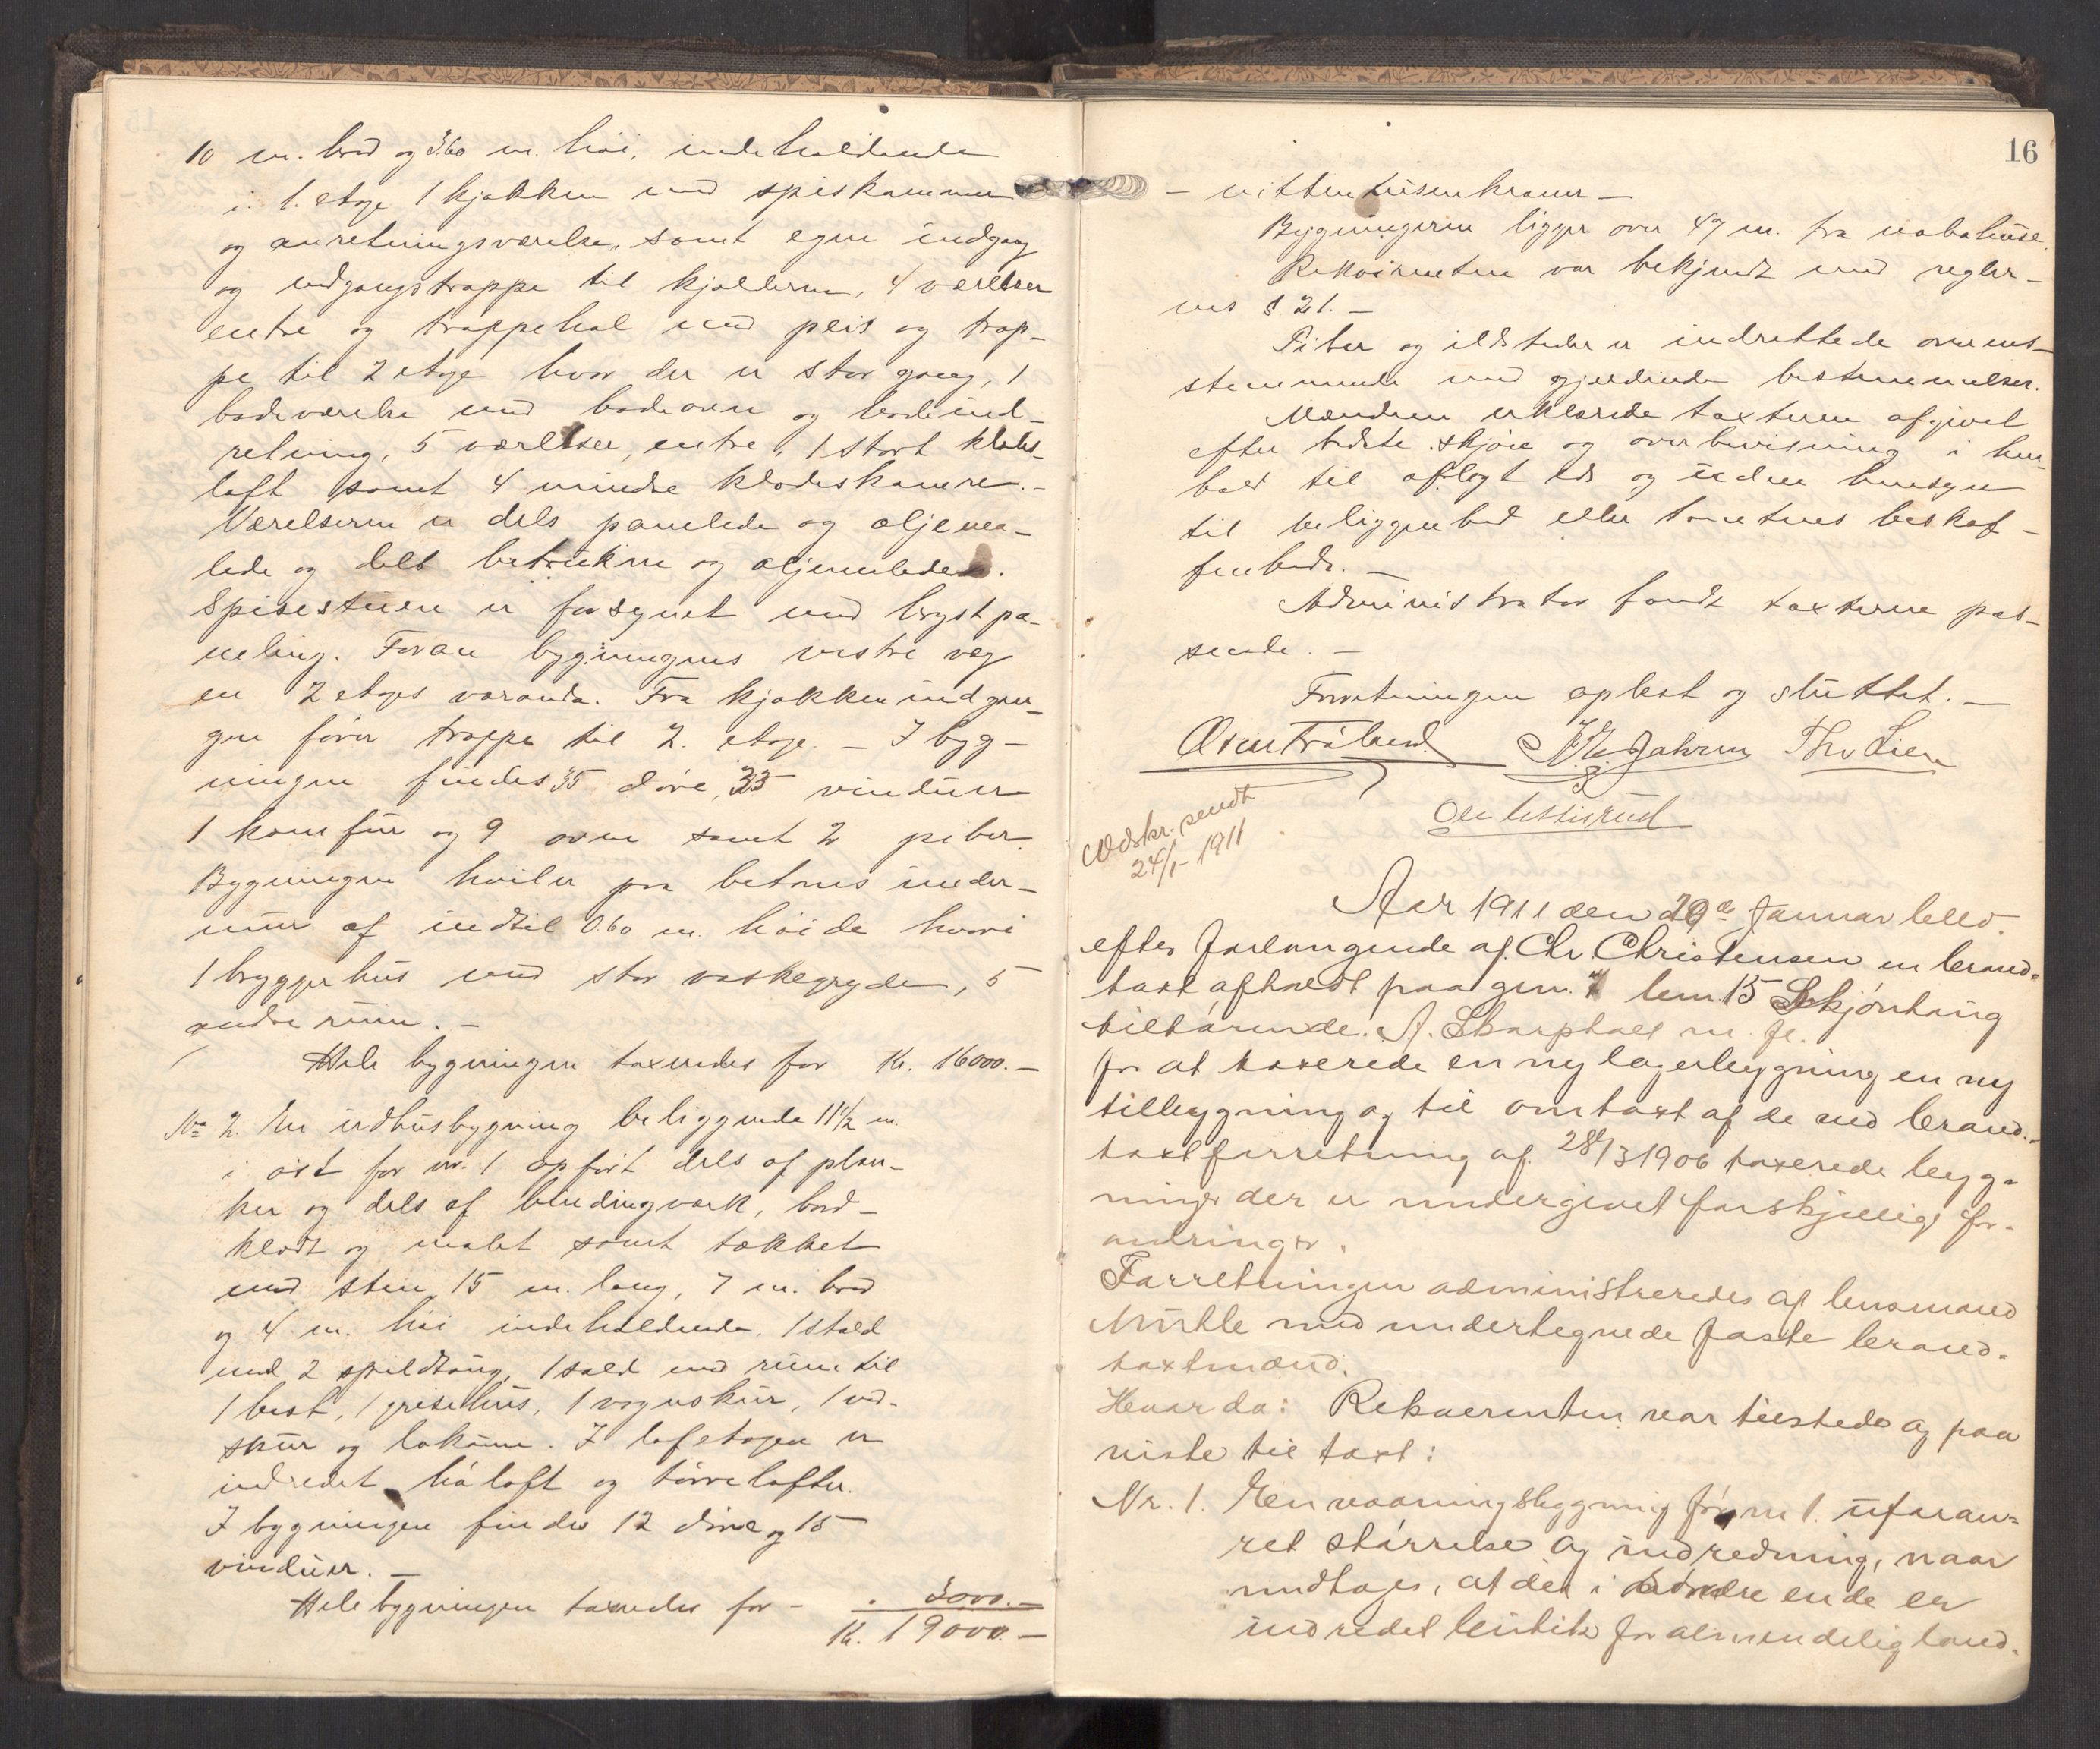 10 m. bred og 3.60 m. höi, indeholdende
i 1. etage 1 kjøkken med spiskammer
og anretningsværelse, samt egen indgang
og nedgangstrappe til kjælleren, 4 værelser
entre og trappehal med peis og trap-
pe til 2 etage hvor der er stor gang, 1
badeværelse med badeovn og badeind-
retning, 5 værelser, entre, 1 stort klæds-
loft samt 4 mindre klædeskamre.-
Værelserne er dels panelede og oljema-
lede og dels betrukne og oljemalede.
Spisestuen er forsynet med brystpa-
neling. Foran bygningens vestre væg
en 2 etages varanda. Fra kjøkkenindgan-
gen förer trappe til 2. etage. - I byg-
ningen findes 35 döre, 33 vinduer
1 komfür og 9 ovne samt 2 piber.
Bygningen hviler paa betons under-
mur af indtil 0.60 m. höide hvori
1 bryggerhus med stor vaskegryde, 5
andre rum. -
Hele bygningen taxeredes for Kr. 16000.-
No 2. En udhusbygning beliggende 11 1/2 m.
i öst for nr. 1 opfört dels af plan-
ker og dels af bindingværk, bord-
klædt og malet samt tækket
med sten 15 m. lang, 7 m. bred
og 4 m. höi indeholdende, 1 stald
med 2 spildtoug, 1 stald med rum til
1 hest, 1 grisehus, 1 vognskur, 1 ved-
skur og lokum. I lofetagen er
indredet höloft og törrelofter.
I bygningen findes 12 döre og 15
vinduer. -
Hele bygningen taxeredes for - . 3000.-
Kr. 19000.-
16
- nitten tusen kroner -
Bygningerne ligger over 47 m. fra nabohuse.
Rekvirenten var bekjendt med regler-
nes § 21. -
Piber og ildsteder er indrettede overens-
stemmende med gjældende bestemmelser.
Mændene erklærede taxterne afgivet
efter bedste skjön og overbevisning i hen-
hold til aflagt ed og uden hensyn
til beliggenhed eller tomtens beskaf-
fenhed. -
Administrator fandt taxterne pas-
sende. -
Forretningen oplæst og sluttet. -
Thv Lien
Udskr. sendt
24/1- 1911
Aar 1911 den 20de Januar blev
efter forlangende af Chr Christensen en brand-
taxt afholdt paa gnr. 7 bnr. 15 Skjönhaug
tilhörende A. Skarpholt m. fl.
for at taxerede en ny lagerbygning en ny
tilbygning og til omtaxt af de ved brand-
taxtforretning af 28/3 1906 taxerede byg-
ninger der er undergivet forskjellige for-
andringer.
Forretningen administreredes af lensmand
Mürkle med undertegnede faste brand-
taxtmænd.
Hvorda: Rekverenten var tilstede og paa
viste til taxt:
Nr. 1. En vaaningsbygning för nr 1. uforan-
ret störrelse og indredning, naar
undtages, at der i söndre ende er
indredet butik for almindelig land-